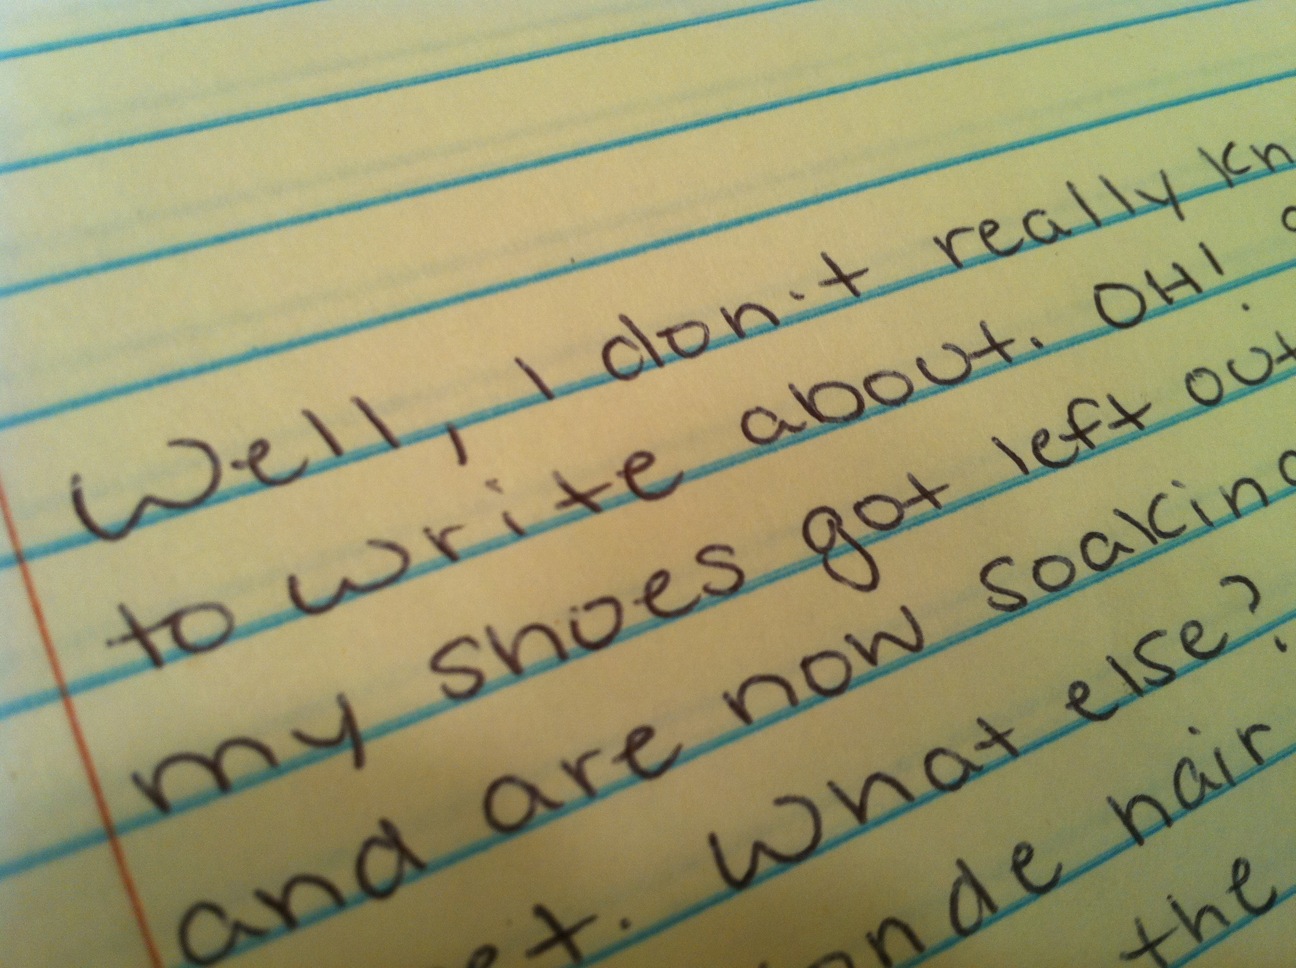 Well, I don't really kn
to write about. OH!
my shoes got left out
and are now soaking
et. What else?
onde hair
the